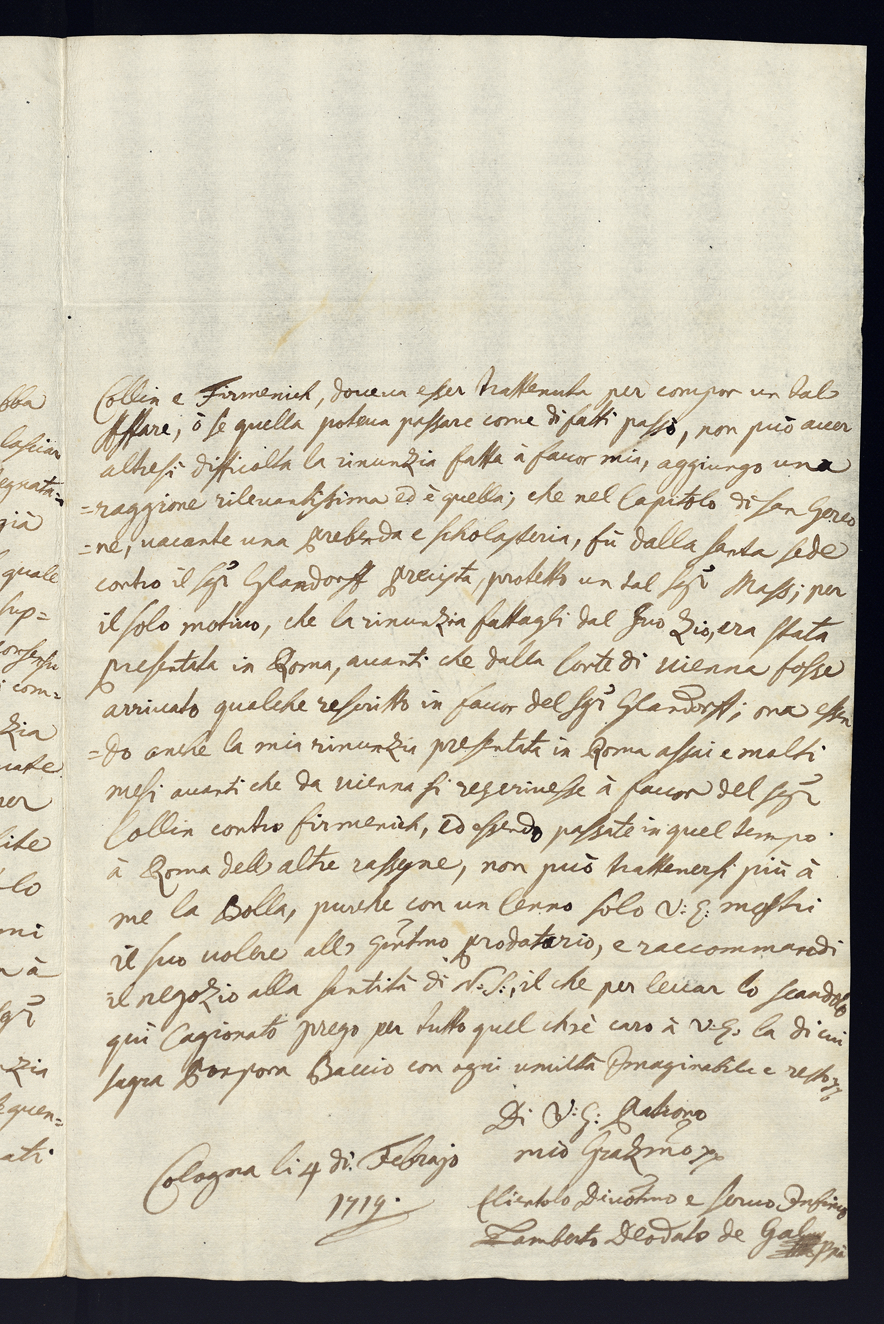 Collin e Firmenich, doueua esser trattenuta per compor un tal
Affare, ò se quella poteua passare come di fatti passò, non può auer
altresi difficoltà la rinunzia fatta à fauor mio, aggiungo una
=raggione rileuantissima ed è quella; che nel Capitolo di San Gereo
=ne, uacante una prebenda e scholasteria, fù dalla Santa Sede
contro il Sgr Glandorff precista, protetto un tal Sgr Mass; per
il solo motiuo, che la rinunzia fattagli dal Suo Zio, era stata
presentata in Roma, auanti che dalla Corte di Vienna fosse
arriuato qualche rescritto in fauor del Sgr Glandorff; ora essen
=do anche la mia rinunzia presentata in Roma assai e molti
mesi auanti che da Vienna si rescriuesse à fauor del Sgr
Collin contro firmenich, ed essendo passate in quel tempo
à Roma dell altre rassegne, non può trattenersi più à
me la Bolla, purche con un Cenno solo V: E: mostri
il suo uolere all prodatario, e raccommandi
il negozio alla Santità di N: S:, il che per leuar lo scandolo
qui Cagionato prego per tutto quel ch'è caro à V: E. la di cui
Sagra Porpora Baccio con ogni umiltà Imaginabile e resto
Di V: E: Patrono
mio
Cologna li 4 di Febrajo
1719.
Clientolo e Seruo
Lamberto Deodato de
bba
lasciar
egnata=
già
quale
sup=
consensu
com=
zia
uate
per
lite
lo
mi
à
Sgr
nzia
equen=
ati